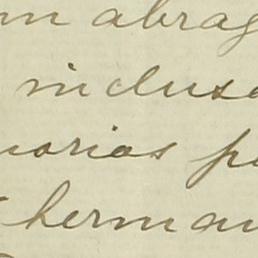 m abrag
incluso
morias pa
herman